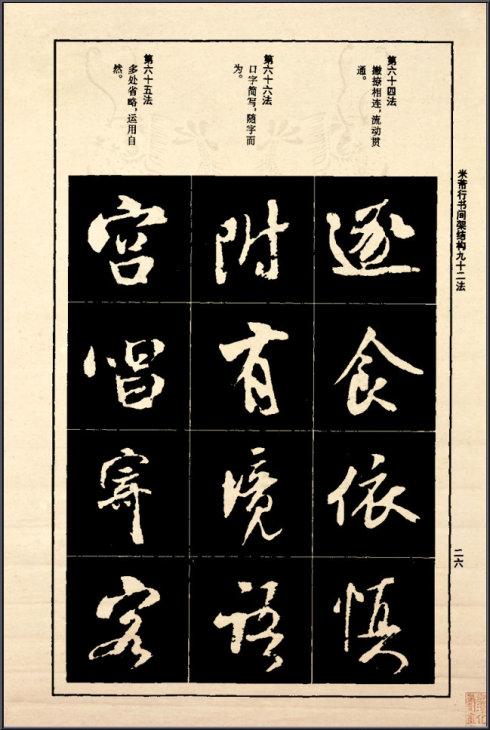 米芾行书间架结构九十二法
二六
第六十四法
撇捺相连，流动贯
通。
第六十六法
口字简写，随字而
为。
第六十五法
多处省略，运用自
然。
逐食依慎
附有境語
宫唱寄客